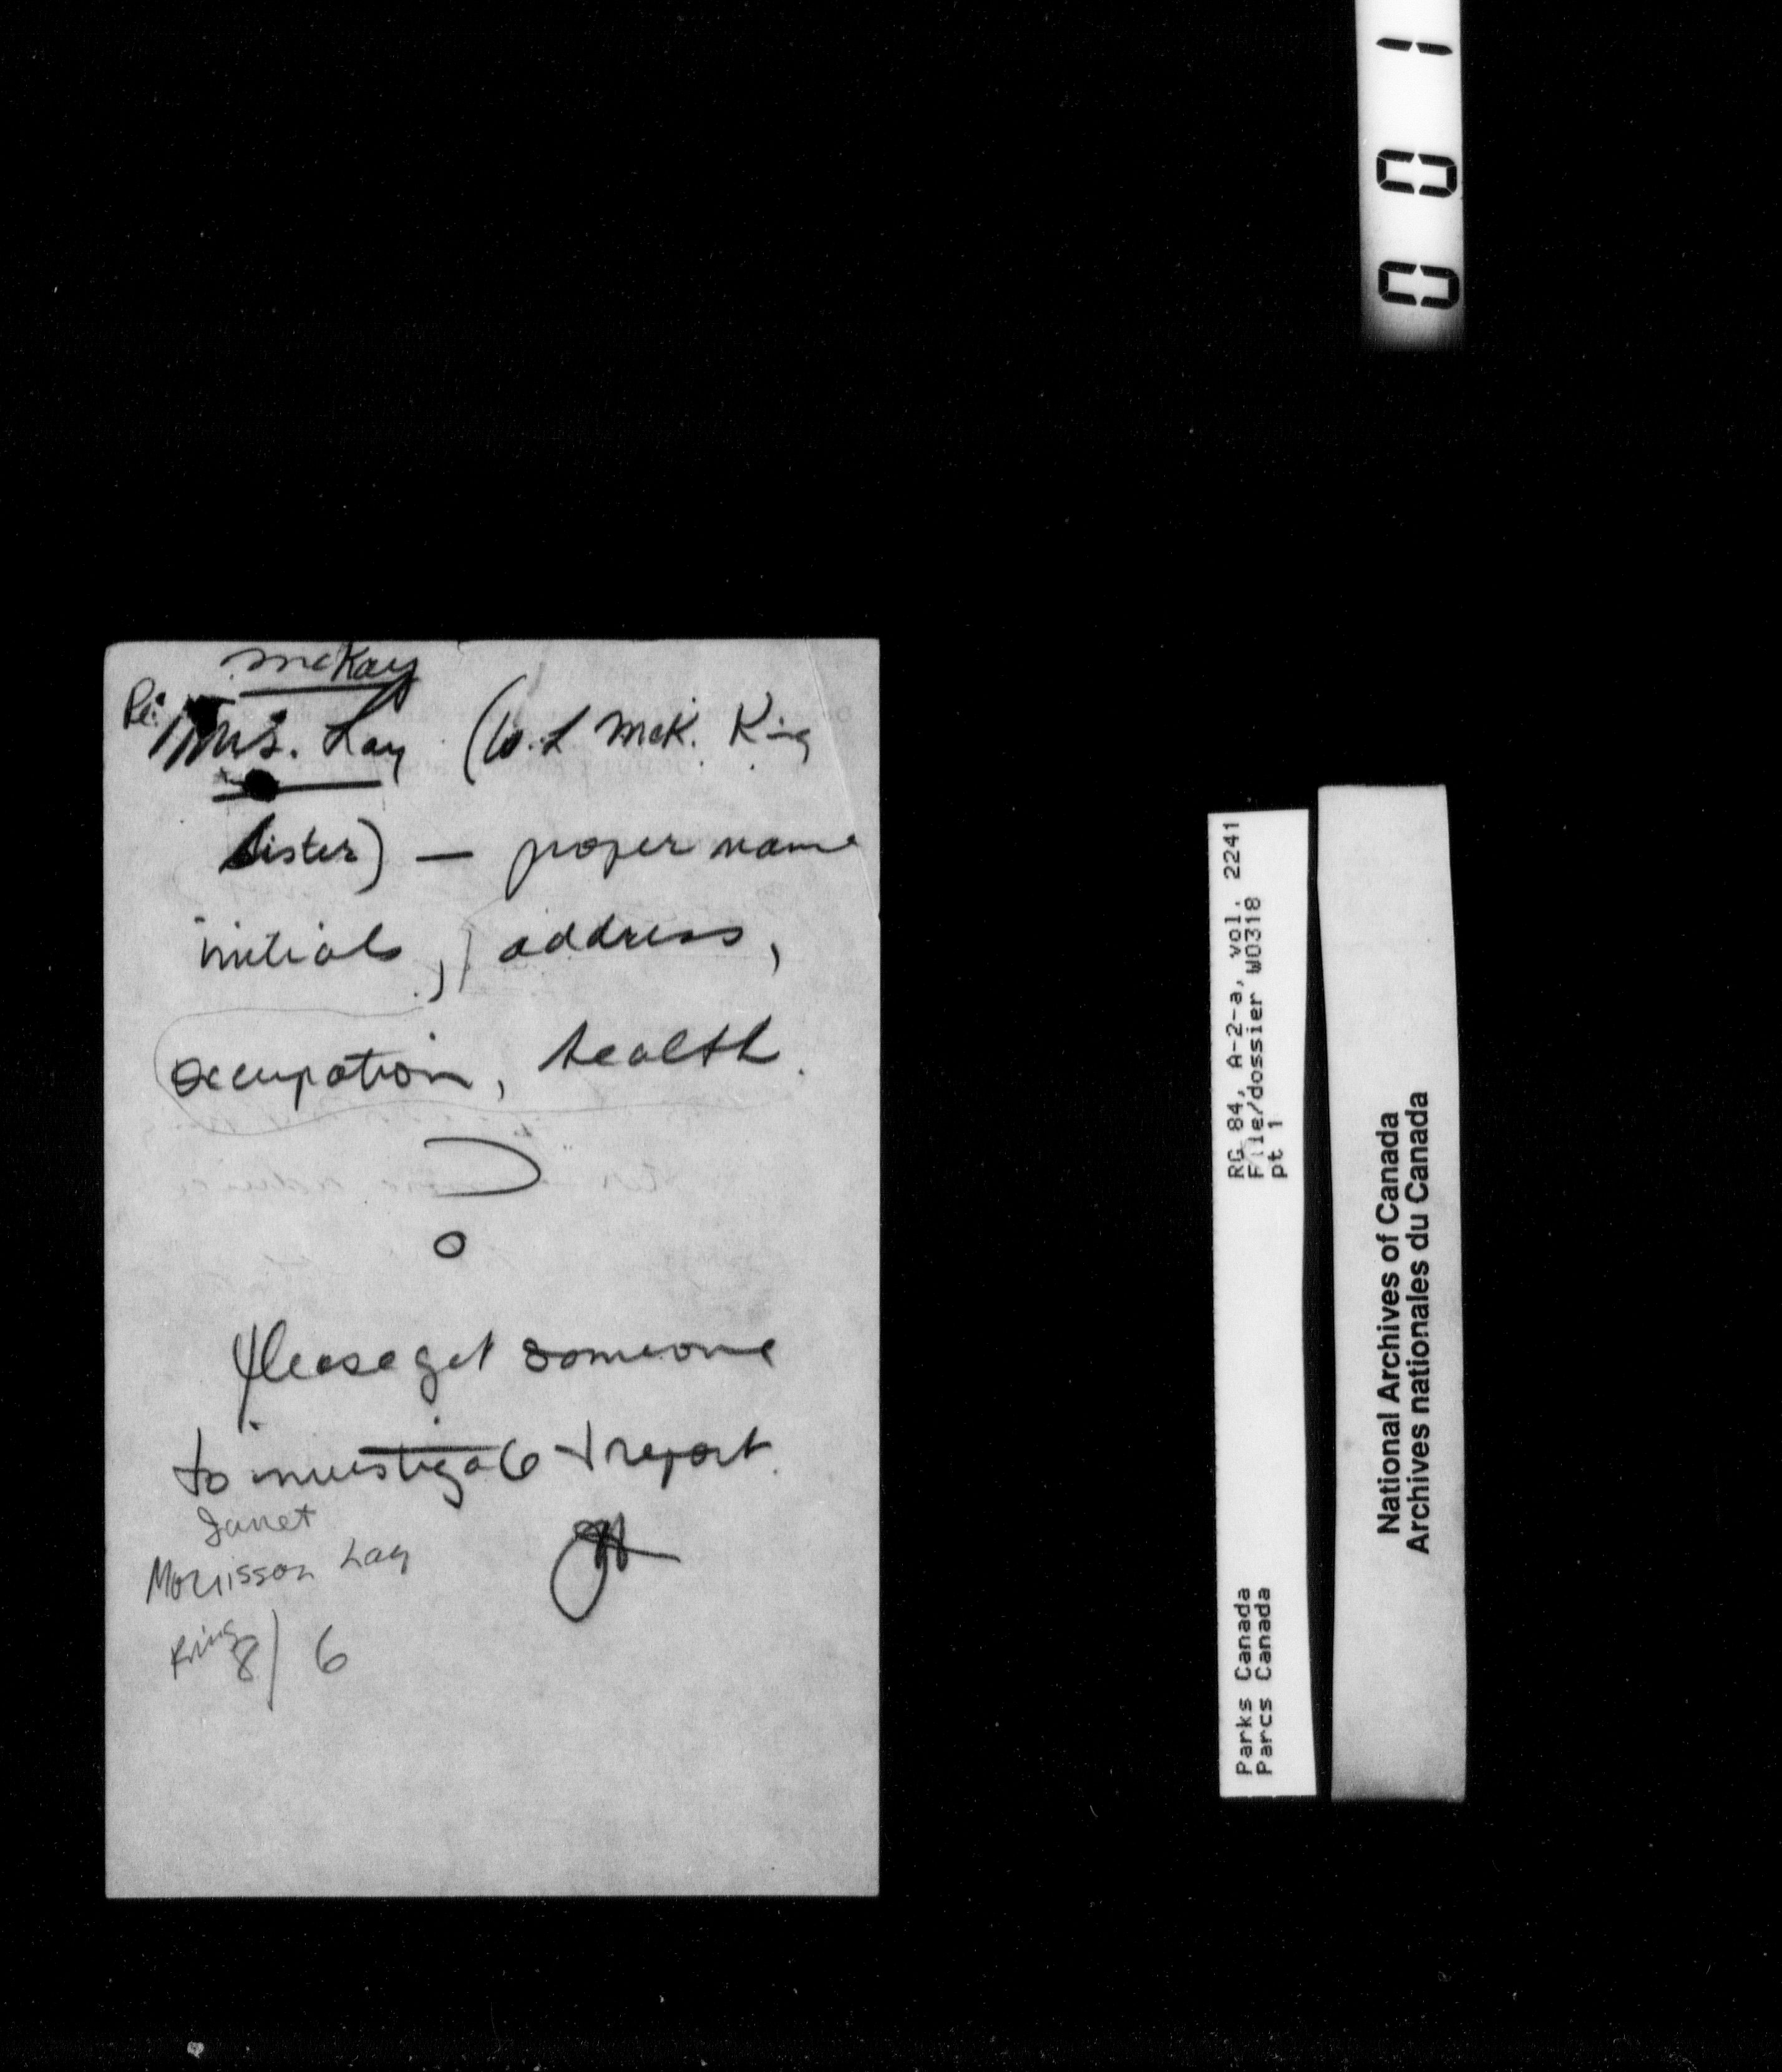 McKay
Re: Mrs. Lay (W. L McK. King
sister) — proper name
initials, address,
occupation, health.
?
Please get someone
to investigate & report.
Janet
Morrisson Lay
King
8/6
001
RG 84, A-2-a, vol. 2241
File/dossier W0318
pt 1
Parks Canada
Parcs Canada
National Archives of Canada
Archives nationales du Canada